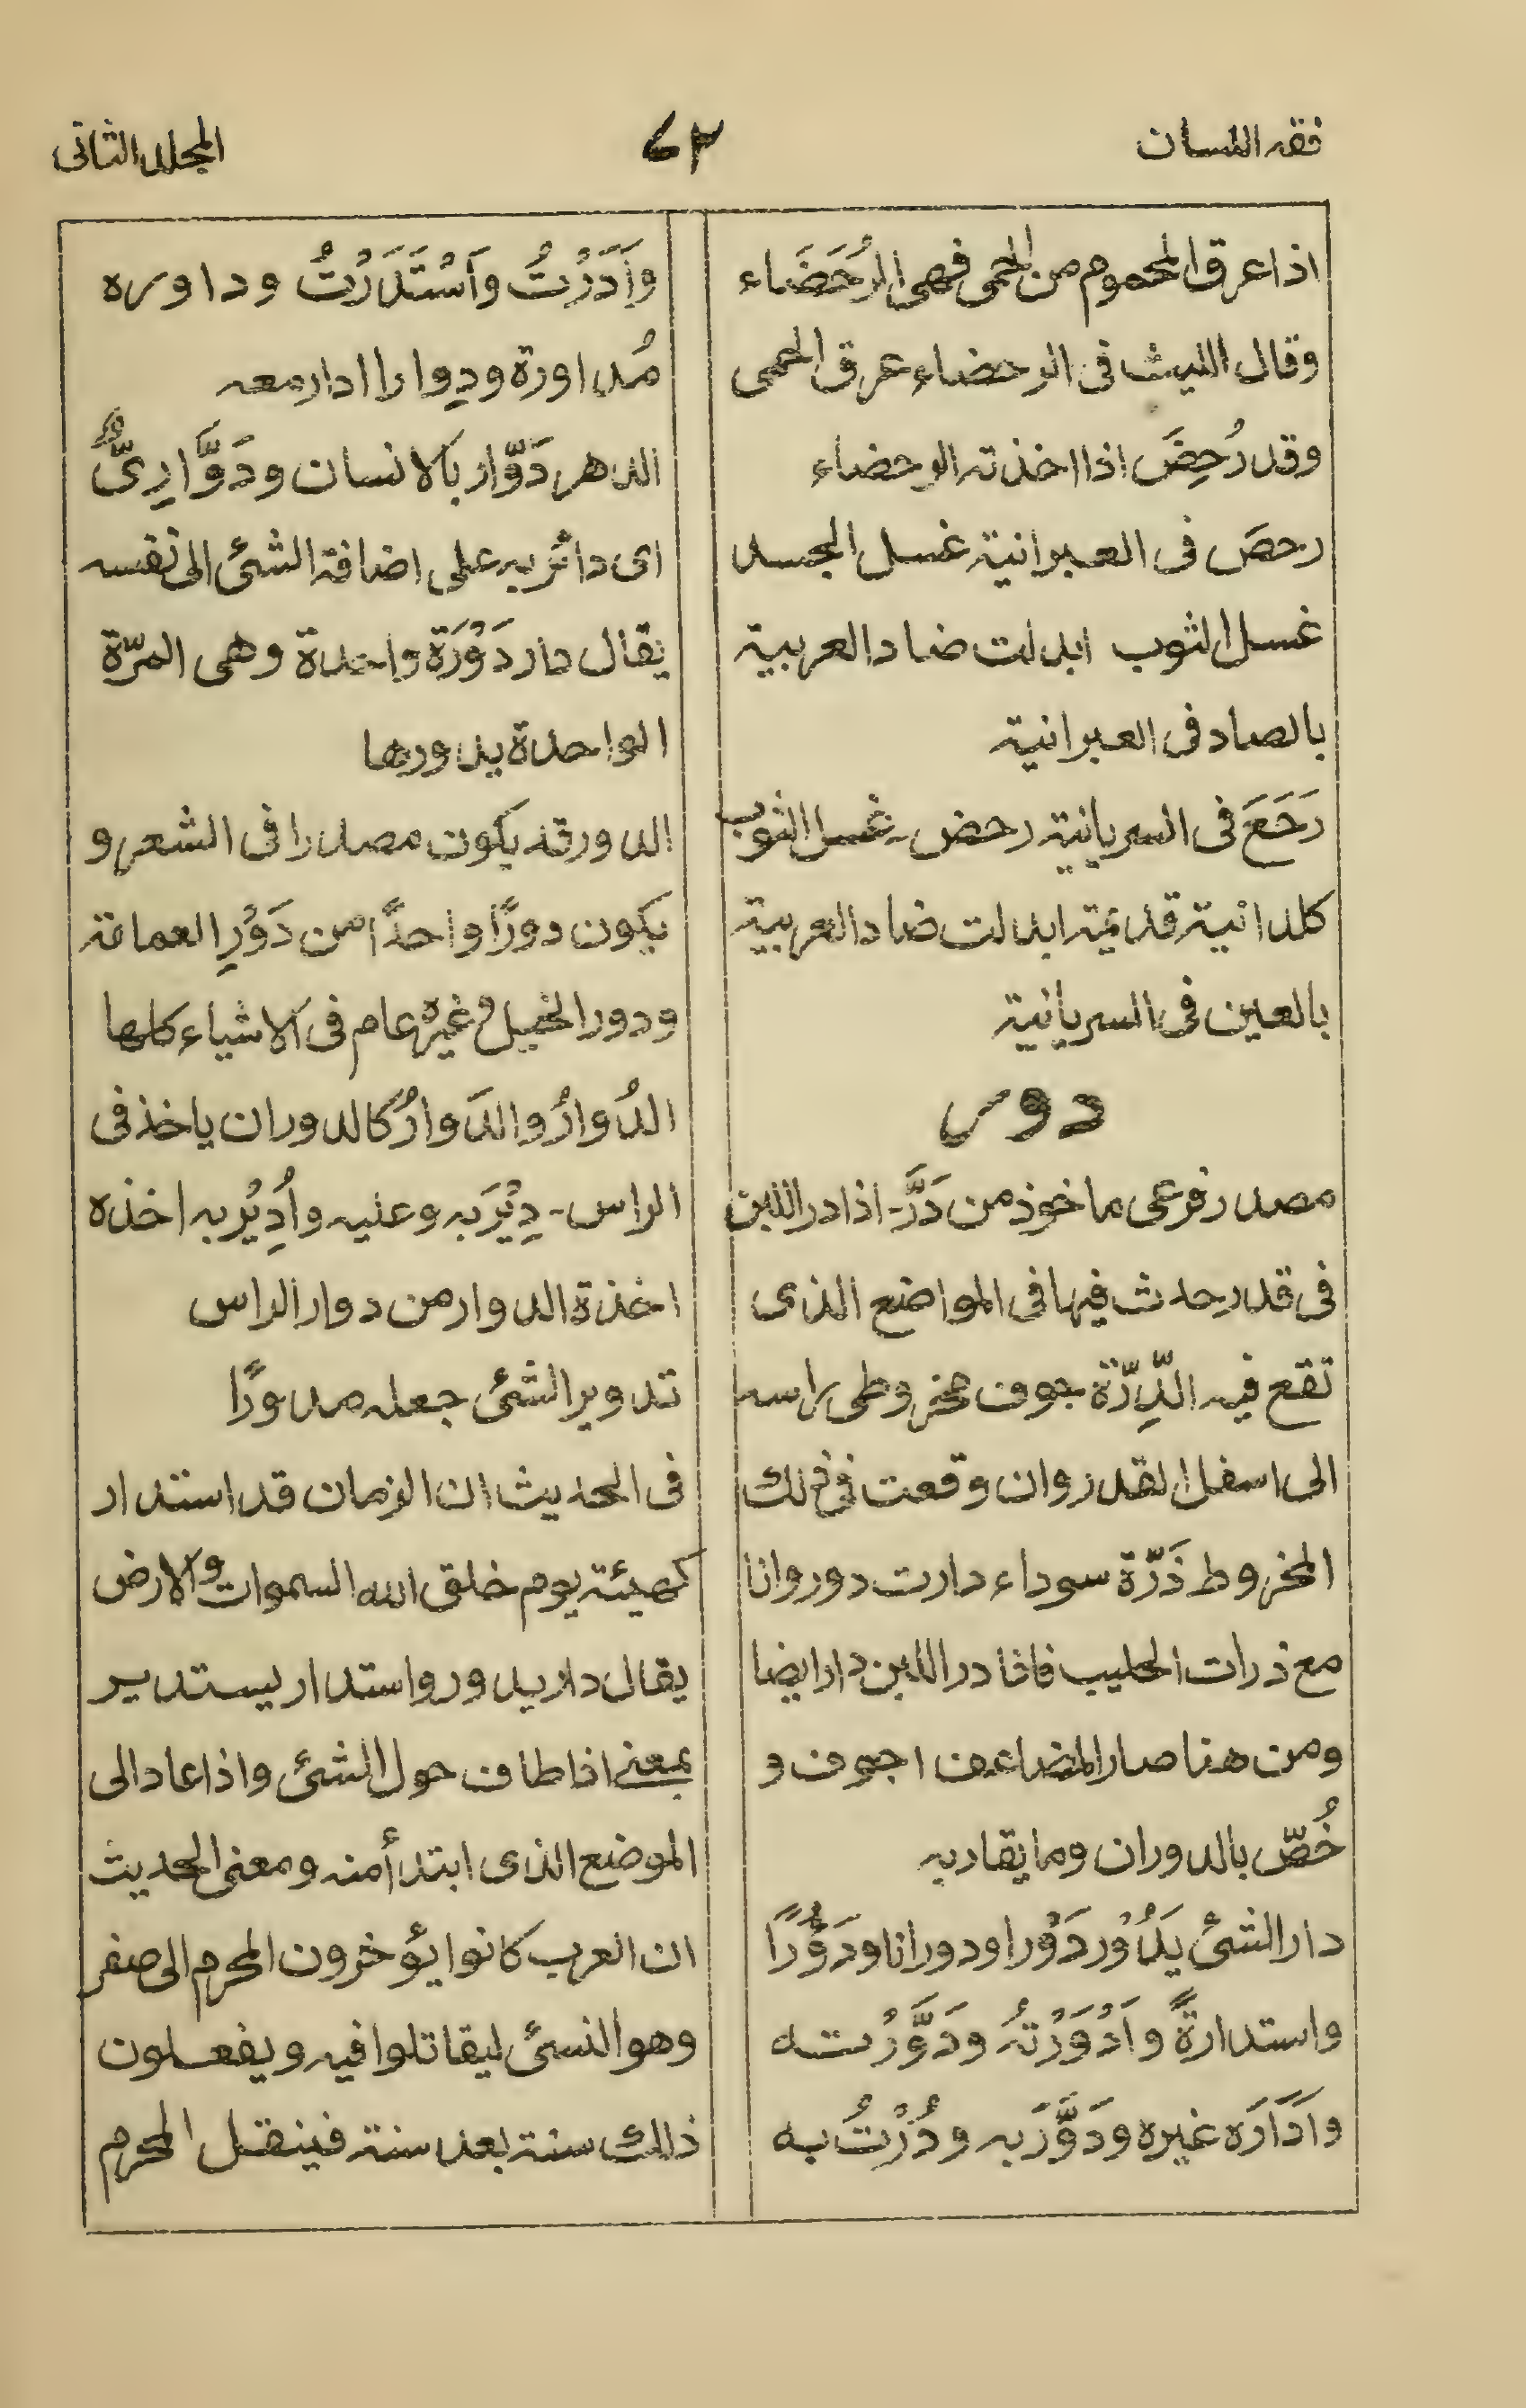 فقه اللسان
٦٢
المجلد الثانى
اذا عرق المحموم من الحمى فهى الرُحَضَاء
وقال الليث فى الرحضاء عرق الحمى
وقد رُحِضَ اذا اخذته الرحضاء
رحصَ فى العبرانية غسل الجسد
غسل الثوب ابدلت ضاد العربية
بالصاد فى العبرانية
رَحَعَ فى السريانية رحض - غسل الثوب
كلدانية قديمة ابدلت ضاد العربية
بالعين فى السريانية
دور
مصدر فرعى ماخوذ من دَرَّ - اذا در اللبن
فى قدر حدث فيها فى المواضع الذى
تقع فيه الدِّرّة جوف مخروطى راسه
الى اسفل القدر وان وقعت فى ذلك
المخروط ذَرّة سوداء دارت دورانا
مع ذرات الحليب فاذا در اللبن دار ايضا
ومن هنا صار المضاعف اجوف و
خُصّ بالدوران وما يقاربه
دار الشئ يَدُوْر دَوْرا ودورانا ودَوُّرًا
واستدارةً واَدْوَرْتُه ودَوَّرْته
واَدَارَه غيره ودَوَّرَ به ودُرْتُ به
واَدَرْتُ واَسْتَدَرْتُ وداوره
مُداورة ودِوارا ادار معه
الدهر دَوّار بالانسان ودَوَّارِىٌّ
اى دائر به على اضافة الشئ الى نفسه
يقال دار دَوْرَة واحدة وهى المرّة
الواحدة يدورها
الدور قد يكون مصدرا فى الشعر و
يكون دورًا واحدًا من دَوْرِ العمامة
ودور الخيل وغيره عام فى الاشياء كلها
الدُوارُ والدَوارُ كالدوران ياخذ فى
الراس - دِيْرَ به وعليه واُدِيْر به اخذه
اخذة الدوار من دوار الراس
تدوير الشئ جعله مدورًا
فى الحديث ان الزمان قد استدار
كهيئته يوم خلق الله السموات والارض
يقال دار يدور واستدار يستدير
بمعنى اذا طاف حول الشئ واذا عاد الى
الموضع الذى ابتدأ منه ومعنى الحديث
ان العرب كانوا يؤخرون المحرم الى صفر
وهو النسئ ليقاتلوا فيه ويفعلون
ذلك سنة بعد سنة فينتقل المحرم